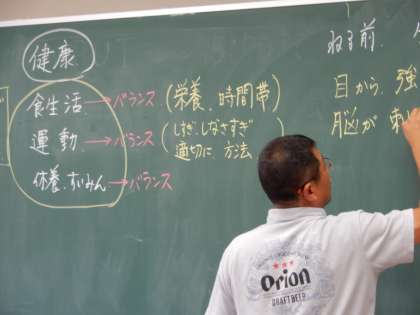 健康
食生活→バランス(栄養、時間帯)
運動、→バランス(しすぎ、しなさすぎ
適切に、方法
休養、すいみん→バランス
ねる前、
目から、強
脳が刺
Orion
DRAFT BEER